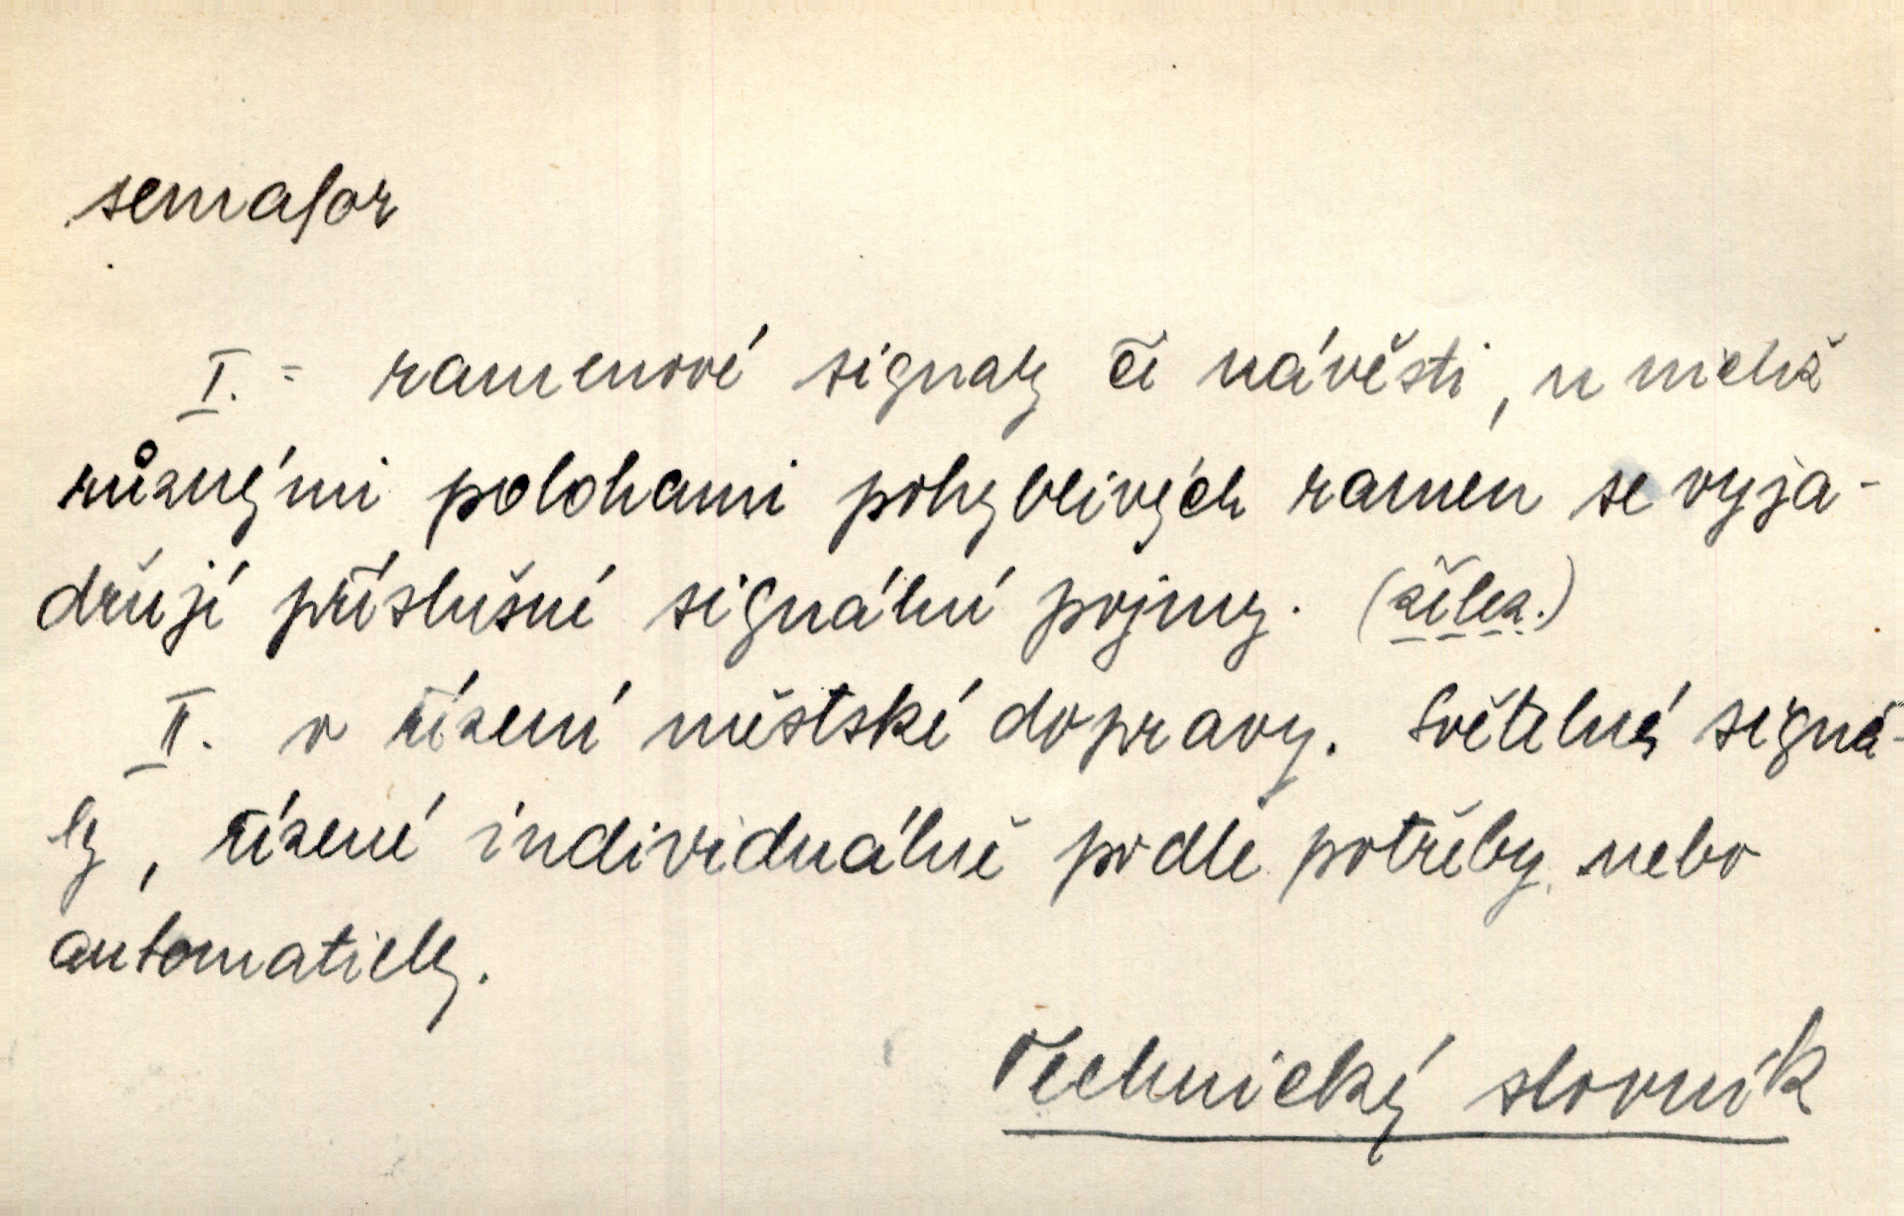 semafor
I. = ramenové signaly či návěsti, u nichž
různými polohami pohyblivých ramen se vyja-
dřují příslušné signální pojmy. (želez.)
II. v řízení městské dopravy. Světelné signá-
ly, řízené individuálně podle potřeby nebo
automaticky.
Technický slovník